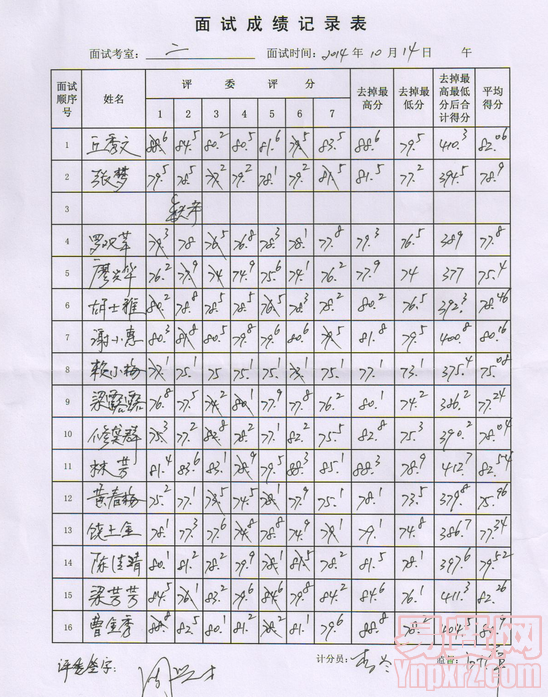 面试成绩记录表
面试考室： 二 面试时间：2014年10月14日 午
面试顺序号 姓名 评委评分 去掉最高分 去掉最低分 去掉最高最低分后合计得分 平均得分
1 2 3 4 5 6 7
1 88.6 84.5 80.2 80.5 81.6 79.5 83.5 88.6 79.5 410.3 82.06
2 张梦 79.5 78.5 77.2 79.2 78.1 79.2 81.5 81.5 77.2 394.5 78.9
3 缺考
4 79.3 78 76.5 76.8 78.3 78.1 77.8 79.3 76.5 389 77.8
5 76.2 77.9 74 74.9 75.6 74.1 76.2 77.9 74 377 75.4
6 胡士雅 80.2 78.8 78.5 78.5 76.5 78.3 78.2 80.2 76.5 392.3 78.46
7 谢小惠 80.3 81.8 80.5 79.9 79.6 80.5 81.8 79.5 400.8 80.16
8 赖小梅 77.1 75.1 75. 75.1 75.1 73.1 75.1 77.1 73.1 375.4 75.08
9 梁露露 76.8 77.5 74.2 80.1 77.9 77.8 76.2 80.1 74.2 386.2 77.24
10 75.3 77.2 82.8 78.2 77.1 82.2 75.5 82.8 75.3 390.2 78.04
11 林芳 81.4 83.6 83.1 78.9 79.5 88.3 85.1 88.3 78.9 412.7 82.54
12 黄春梅 75.2 77.1 73.5 74.5 78.1 77.1 75.1 78.1 73.5 379.8 75.96
13 饶土金 78.1 77.3 77.6 74.8 78.8 74.9 79.1 79.1 74.8 386.7 77.34
14 陈佳靖 80.1 81.2 78.2 79.9 78.1 81.5 78.2 81.5 78.1 397.6 79.52
15 梁芳芳 84.5 76.1 83.2 79.6 84.6 79.8 84.2 84.6 76.1 411.3 82.26
16 88.8 82.5 80.1 81.2 78.2 81.1 79.6 88.8 78.2 404.5
评委签字： 计分员： 监督：
易贤网
Ynpxrz.com